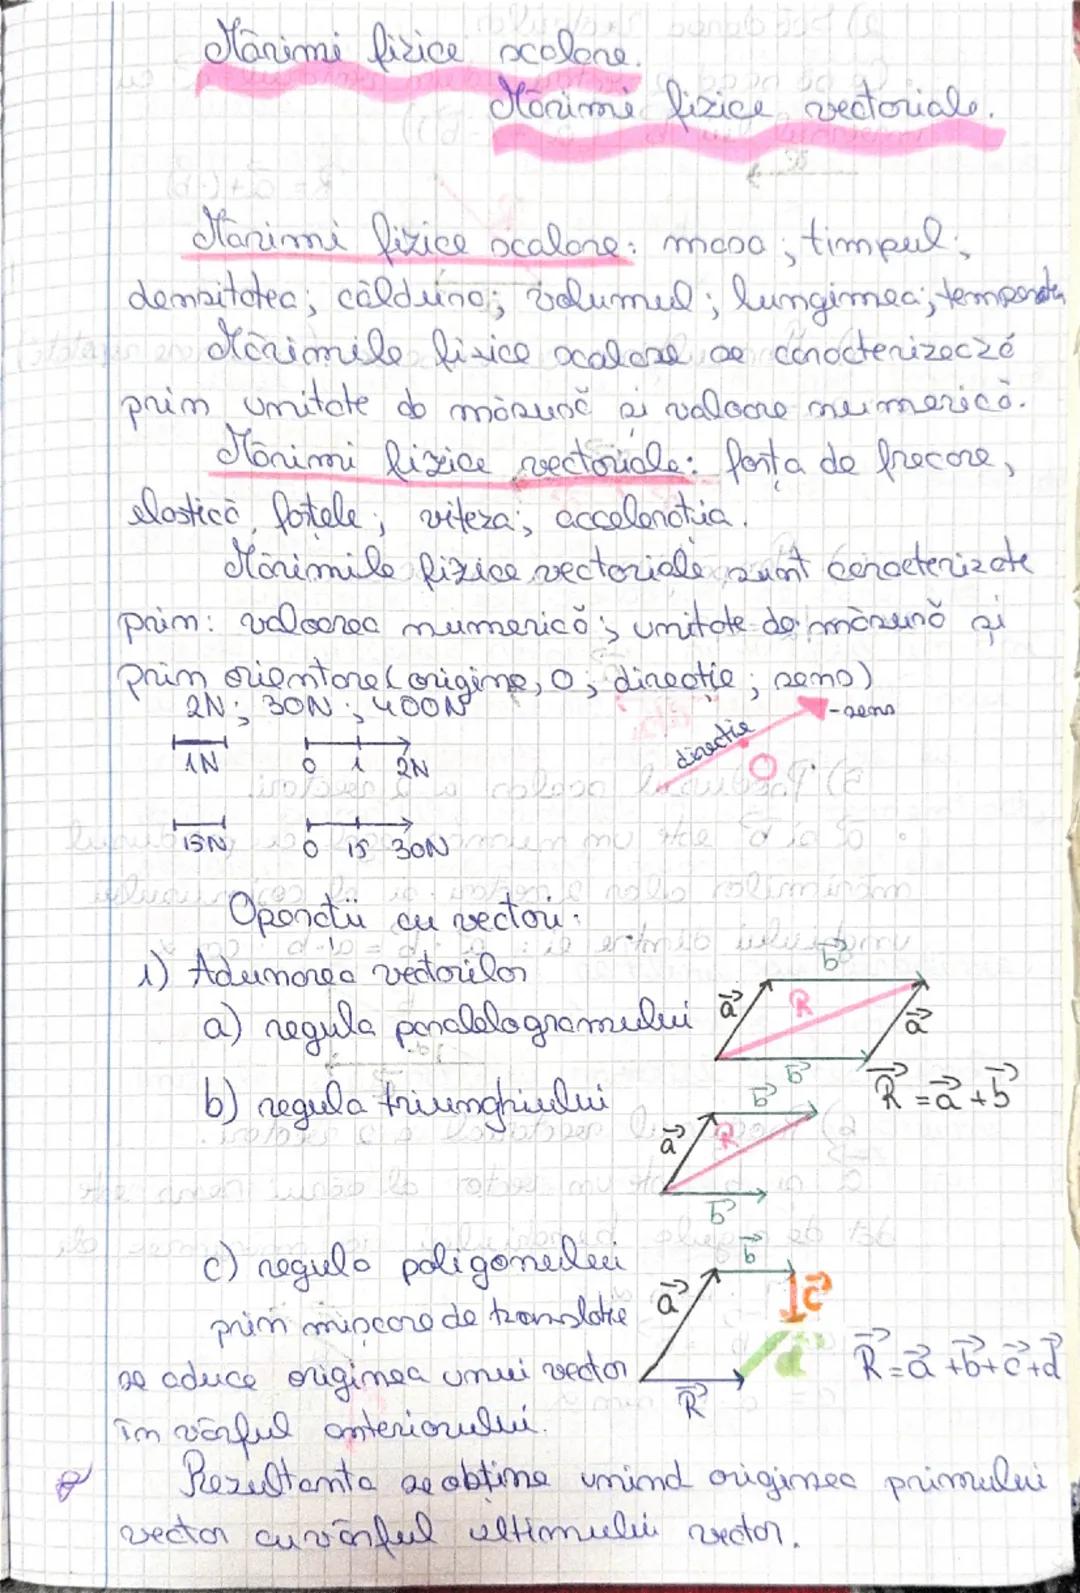 Mărimi fizice scalare.
Mărimi fizice vectoriale.
Mărimi fizice scalare: masa; timpul;
densitatea; căldura; volumul; lungimea; temperatura
Mărimile fizice scalare se caracterizează
prin unitate de măsură și valoare numerică.
Mărimi fizice vectoriale: forța de frecare,
elastică, forțele; viteza; accelerația.
Mărimile fizice vectoriale sunt caracterizate
prin: valoarea numerică; unitate de măsură și
prin orientare (origine, O; direcție; sens)
2N; 30N; 400N
direcție
- sens
O
1N
0 1 2N
15N
0 15 30N
Operații cu vectori:
1) Adunarea vectorilor
a) regula paralelogramului
a⃗ b⃗ R a⃗ b⃗
R⃗ = a⃗ + b⃗
b) regula triunghiului
a⃗ b⃗ R b⃗
c) regula poligonului
a⃗ b⃗ c⃗ d R⃗
prin mișcare de translație
R⃗ = a⃗ + b⃗ + c⃗ + d⃗
se aduce originea unui vector
în vârful anteriorului.
Rezultanta se obține unind originea primului
vector cu vârful ultimului vector.